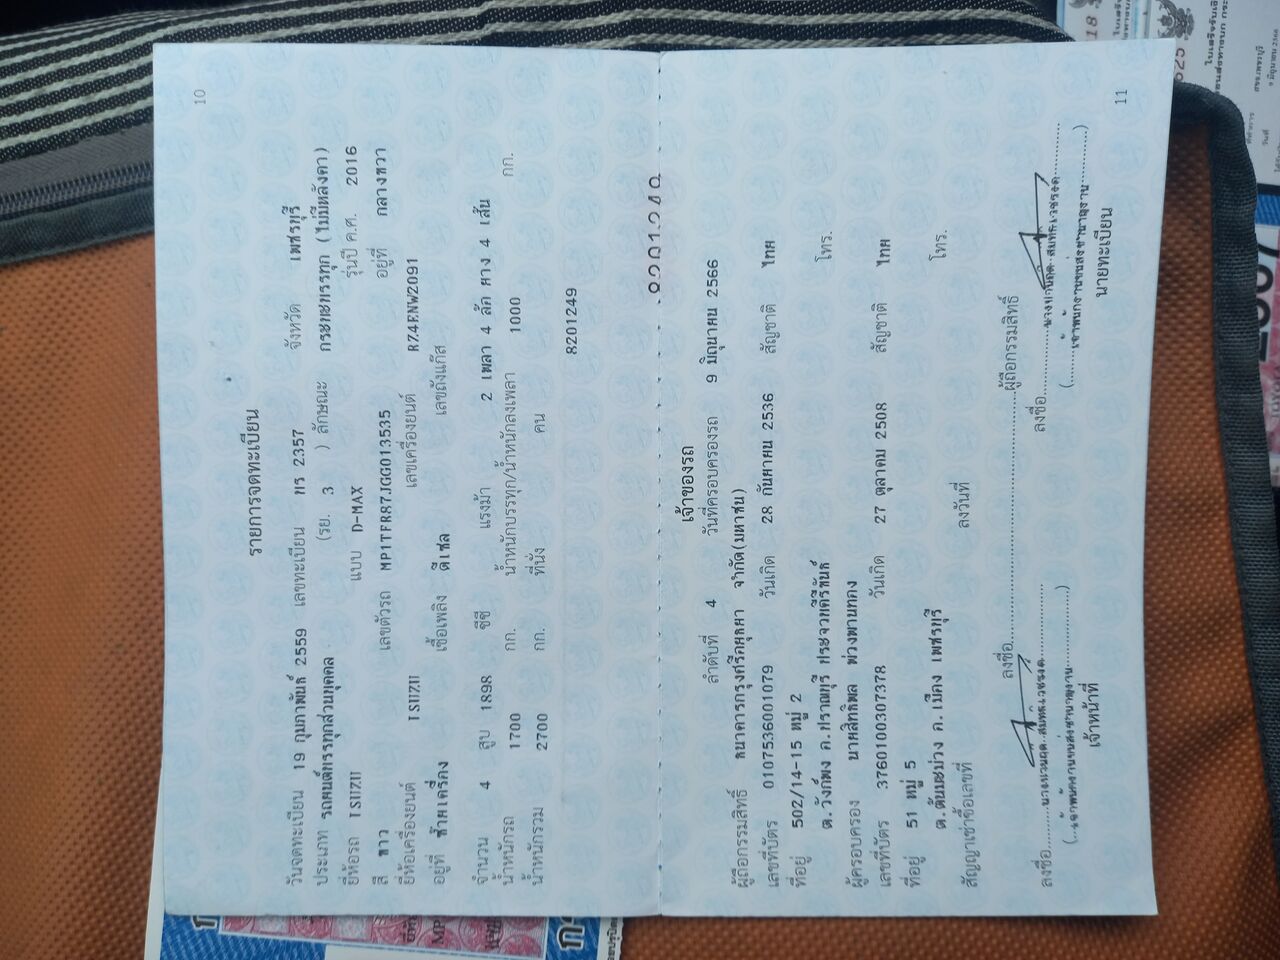 10
รายการจดทะเบียน
วันจดทะเบียน 19 กุมภาพันธ์ 2559 เลขทะเบียน 2357 จังหวัด เพชรบุรี
ประเภท รถยนต์บรรทุกส่วนบุคคล (รย. 3 ) ลักษณะ กระบะบรรทุก (ไม่มีหลังคา)
ยี่ห้อรถ ISUZU แบบ D-MAX รุ่นปี ค.ศ. 2016
สี ขาว เลขตัวรถ MP1TFR87JGG013535 อยู่ที่ กลางขวา
ยี่ห้อเครื่องยนต์ ISUZU เลขเครื่องยนต์ RZ4ENW2091
อยู่ที่ ซ้ายเครื่อง เชื้อเพลิง ดีเซล เลขถังแก๊ส
จำนวน 4 สูบ 1898 ซีซี แรงม้า 2 เพลา 4 ล้อ ยาง 4 เส้น
น้ำหนักรถ 1700 กก. น้ำหนักบรรทุก/น้ำหนักลงเพลา 1000 กก.
น้ำหนักรวม 2700 กก. ที่นั่ง คน
8201249
เจ้าของรถ
ลำดับที่ 4 วันที่ครอบครองรถ 9 มิถุนายน 2566
ผู้ถือกรรมสิทธิ์ ธนาคารกรุงศรีอยุธยา จำกัด(มหาชน)
เลขที่บัตร 0107536001079 วันเกิด 28 กันยายน 2536 สัญชาติ ไทย
ที่อยู่ 502/14-15 หมู่ 2 โทร.
ต.วังก์พง อ.ปราณบุรี ประจวบคีรีขันธ์
ผู้ครอบครอง นายสิทธิพล พ่วงพานทอง
เลขที่บัตร 3760100307378 วันเกิด 27 ตุลาคม 2508 สัญชาติ ไทย
ที่อยู่ 51 หมู่ 5 โทร.
ต.ต้นมะม่วง อ.เมือง เพชรบุรี
สัญญาเช่าซื้อเลขที่ ลงวันที่
ลงชื่อ ผู้ถือกรรมสิทธิ์
ลงชื่อ ลงชื่อ
(เจ้าพนักงานขนส่งชำนาญงาน) (เจ้าพนักงานขนส่งชำนาญงาน)
เจ้าหน้าที่ นายทะเบียน
11